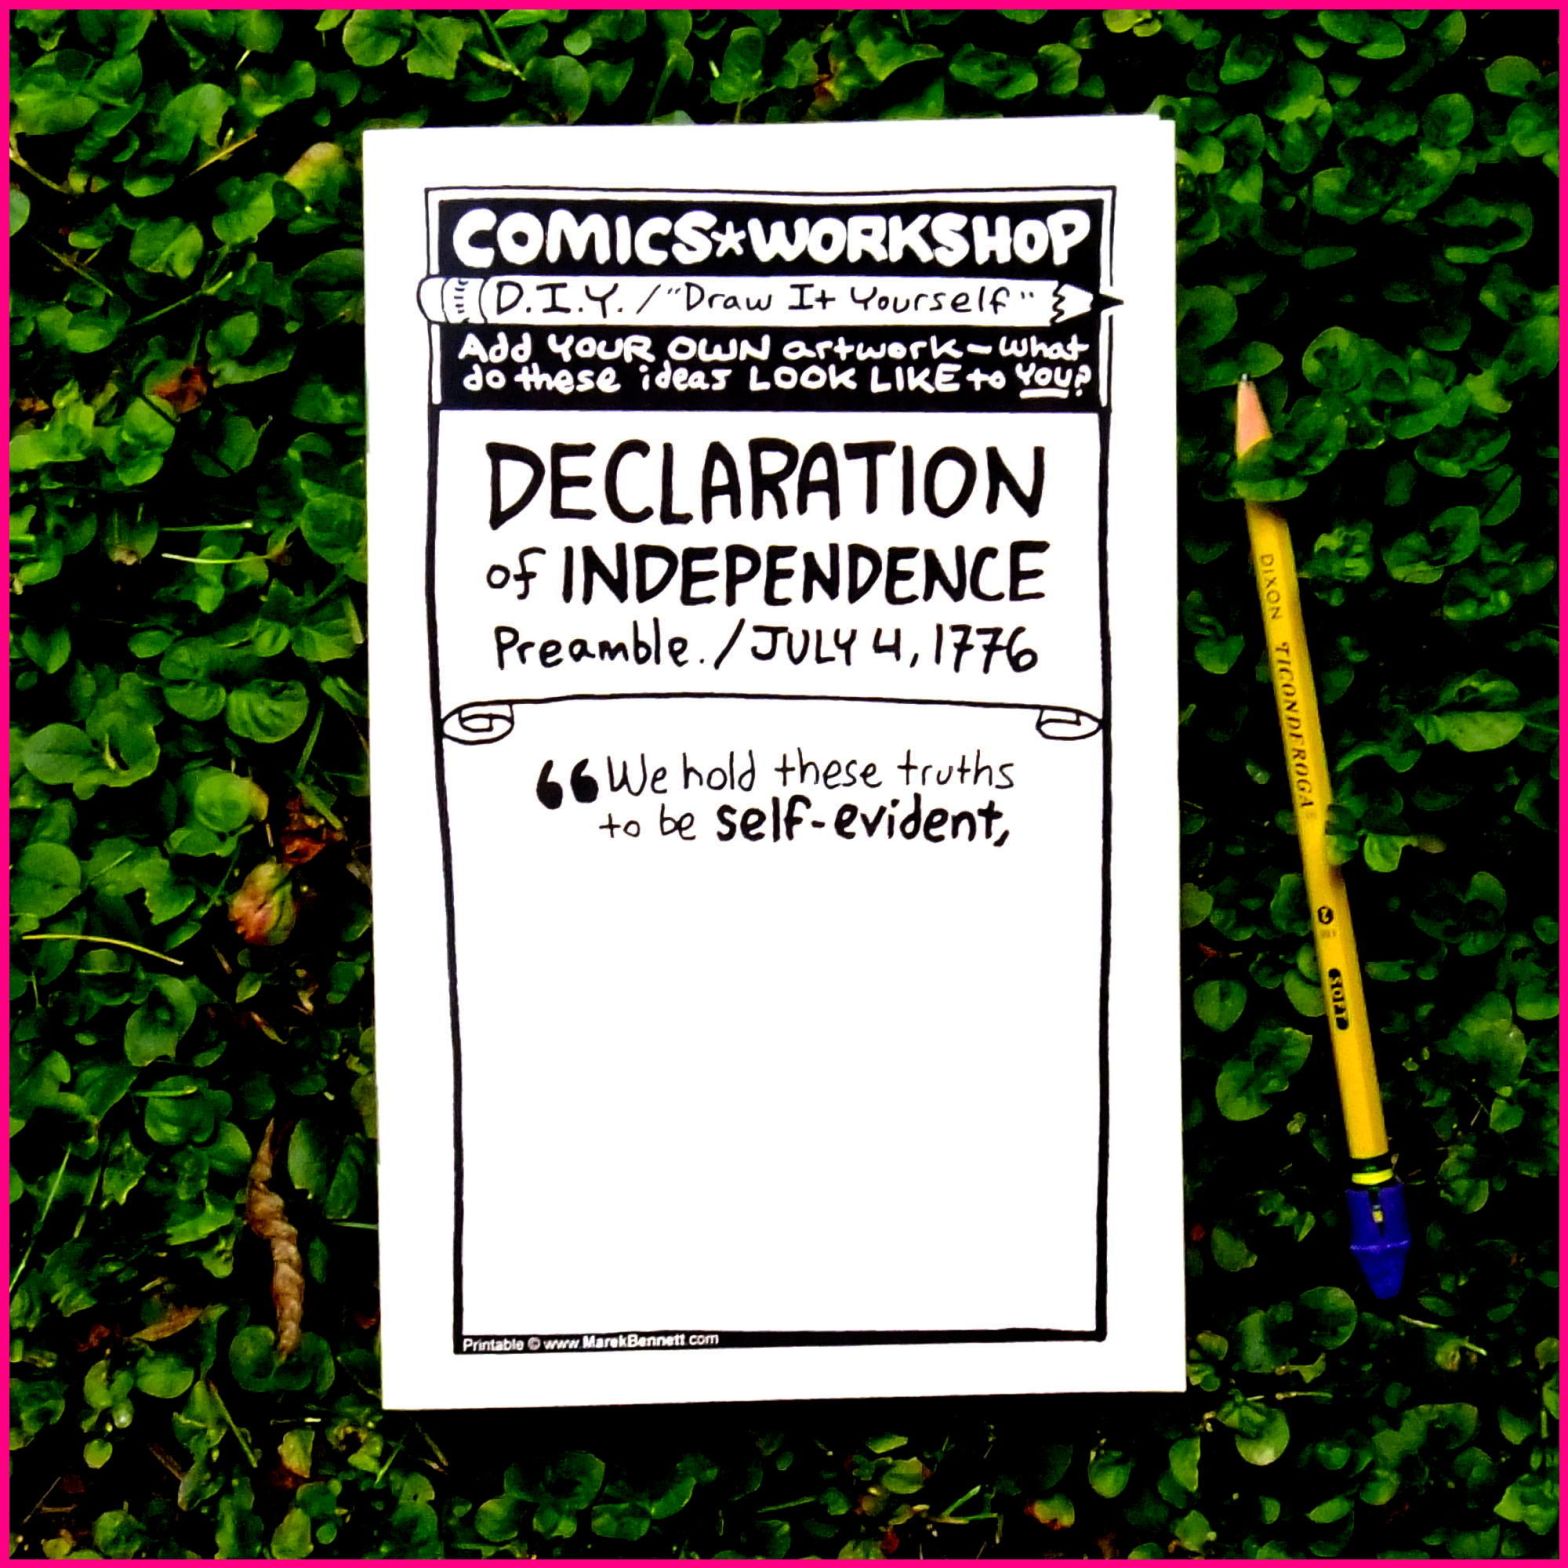 COMICS★WORKSHOP
D.I.Y. / "Draw It Yourself"
Add YOUR OWN artwork – what
do these ideas LOOK LIKE to YOU?
DECLARATION
of INDEPENDENCE
Preamble. / JULY 4, 1776
“We hold these truths
to be self-evident,
Printable © www.MarekBennett.com
DIXON TICONDEROGA